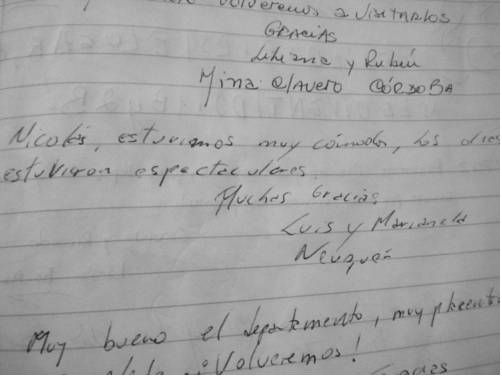 volveremos a visitarlos,
GRACIAS
Liliana y Rubén
Mina Clavero CÓRDOBA
Nicolás, estuvimos muy cómodos, los días
estuvieron espectaculares.
Muchas Gracias.
Luis y Marianela
Neuquén
Muy bueno el departamento, muy
¡Volveremos!